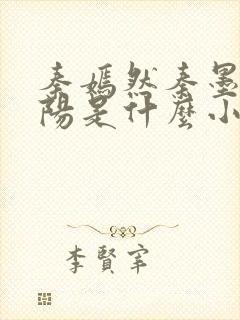 秦嫣然秦墨
陽是什麼小
李賢宰